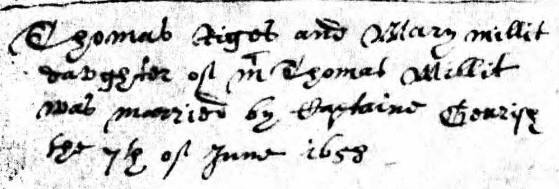 Thomas Riges and Mary millit
davghter of mr Thomas Millit
was married by Captaine Gerrish
the 7th of June 1658